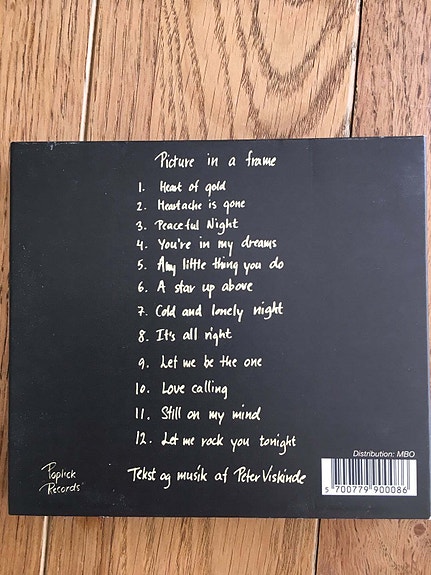 Picture in a frame
1. Heart of gold
2. Heartache is gone
3. Peaceful Night
4. You're in my dreams
5. Any little thing you do
6. A star up above
7. Cold and lonely night
8. It's all right
9. Let me be the one
10. Love calling
11. Still on my mind
12. Let me rock you tonight
Distribution: MBO
Poplick
Records
Tekst og musik af Peter Viskinde
5 700779 900086